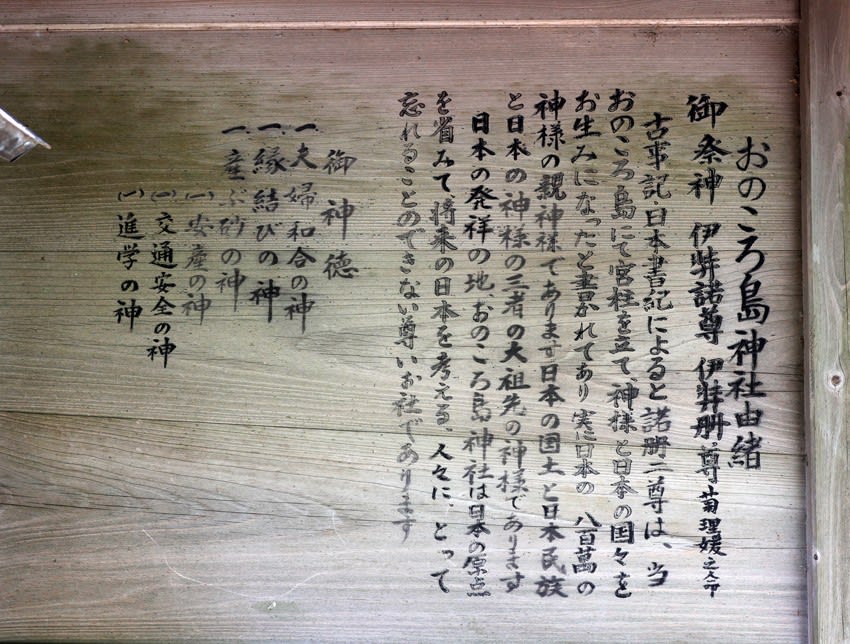 おのころ島神社由緒
御祭神 伊弉諾尊 伊弉冊尊 菊理媛之命
古事記・日本書記によると諾冊二尊は、当
おのころ島にて宮柱を立て、神様と日本の国々を
お生みになったと書かれてあり 実に日本の 八百萬の
神様の親神様であります 日本の国土と日本民族
と日本の神様の三者の大祖先の神様であります
日本の発祥の地、おのころ島神社は日本の原点
を省みて将来の日本を考える、人々に、とって
忘れることのできない尊いお社であります
御神徳
一、夫婦和合の神
一、縁結びの神
一、産ぶ砂の神
(一)安産の神
(一)交通安全の神
(一)進学の神